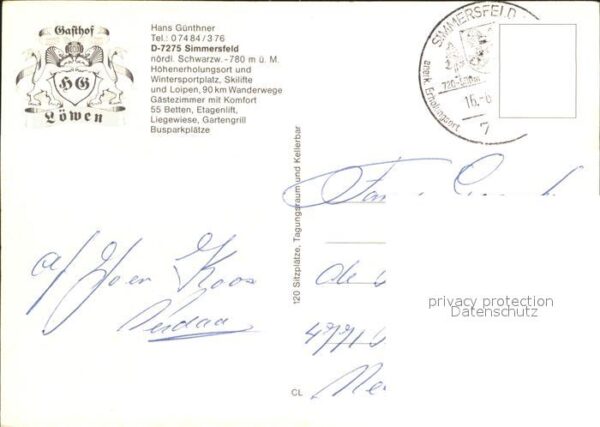 Gasthof
HG
Löwen
Hans Günthner
Tel.: 0 74 84 / 3 76
D-7275 Simmersfeld
nördl. Schwarzw. – 780 m ü. M.
Höhenerholungsort und
Wintersportplatz, Skilifte
und Loipen, 90 km Wanderwege
Gästezimmer mit Komfort
55 Betten, Etagenlift,
Liegewiese, Gartengrill
Busparkplätze
120 Sitzplätze, Tagungsraum und Kellerbar
SIMMERSFELD
anerk. Erholungsort
16.-6
7
Fam.
de
Koos
privacy protection
Datenschutz
CL